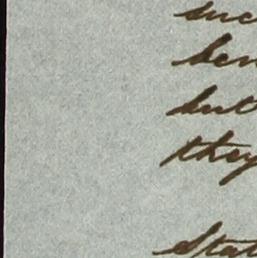 suc
ben
but
they
Stat